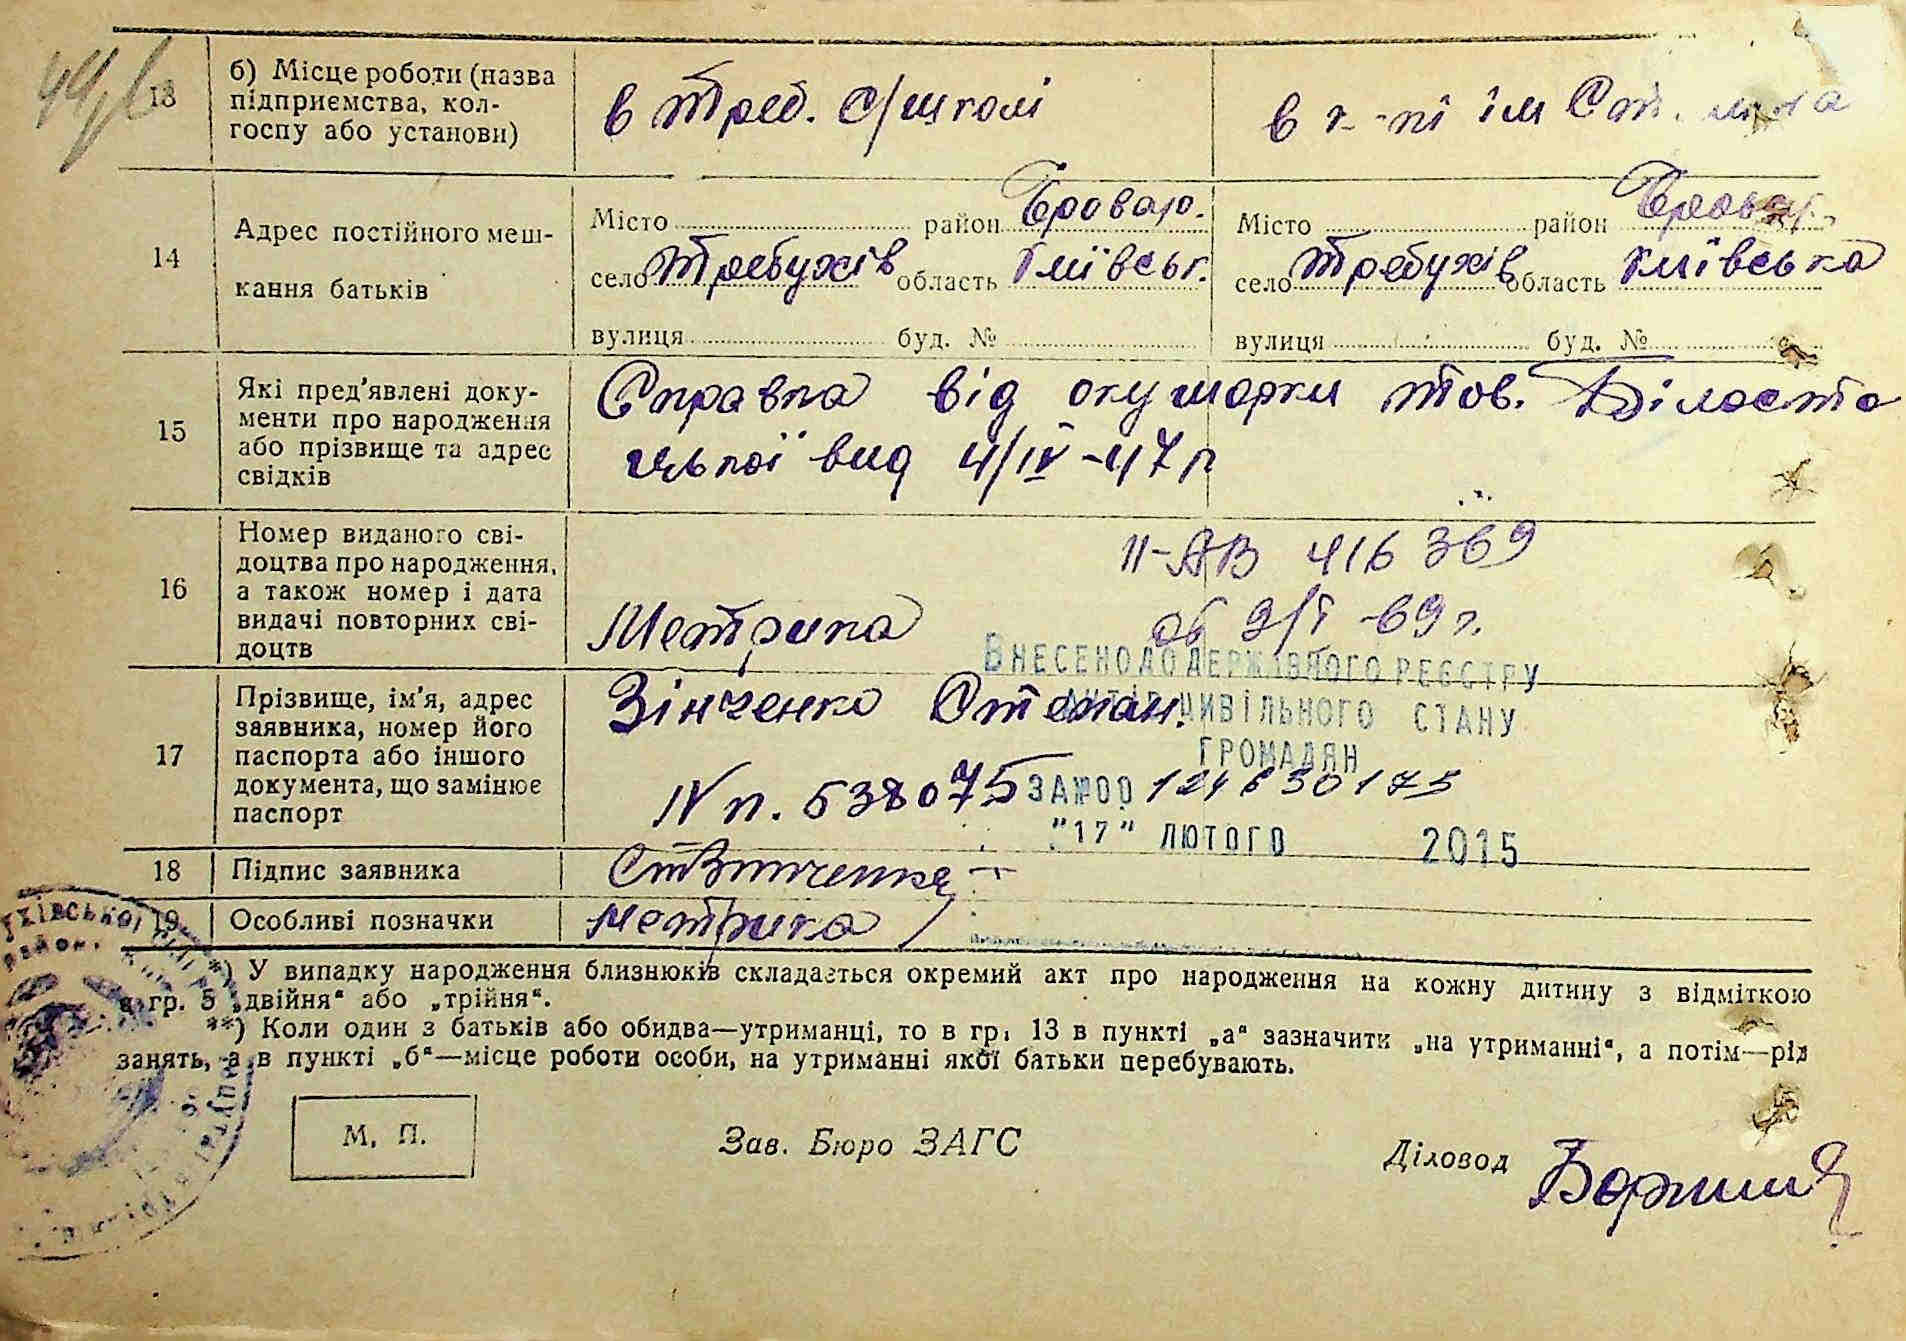 13
б) Місце роботи (назва
підприємства, кол-
госпу або установи)
в Треб. с/школі
в к-пі ім
14
Адрес постійного меш-
кання батьків
Місто район Бровар.
село Требухів область Київськ.
вулиця буд. №
Місто район Бровар.
село Требухів область Київська
вулиця буд. №
15
Які пред'явлені доку-
менти про народження
або прізвище та адрес
свідків
Справка від окушорки тов. Білоста
цької вид 4/IV-47 р
16
Номер виданого сві-
доцтва про народження,
а також номер і дата
видачі повторних сві-
доцтв
II-АВ 416 369
Метрика
об 9/I -69 г.
ВНЕСЕНО ДО ДЕРЖАВНОГО РЕЄСТРУ
АКТІВ ЦИВІЛЬНОГО СТАНУ
ГРОМАДЯН
ЗА №00 124630175
"17" ЛЮТОГО 2015
17
Прізвище, ім'я, адрес
заявника, номер його
паспорта або іншого
документа, що замінює
паспорт
Зінченко Степан.
N п. 538075
18
Підпис заявника
СтЗинченко
19
Особливі позначки
метрика
*) У випадку народження близнюків складається окремий акт про народження на кожну дитину з відміткою
в гр. 5 „двійня" або „трійня".
**) Коли один з батьків або обидва—утриманці, то в гр. 13 в пункті „а" зазначити „на утриманні", а потім—рід
занять, а в пункті „б"—місце роботи особи, на утриманні якої батьки перебувають.
М. П.
Зав. Бюро ЗАГС
Діловод